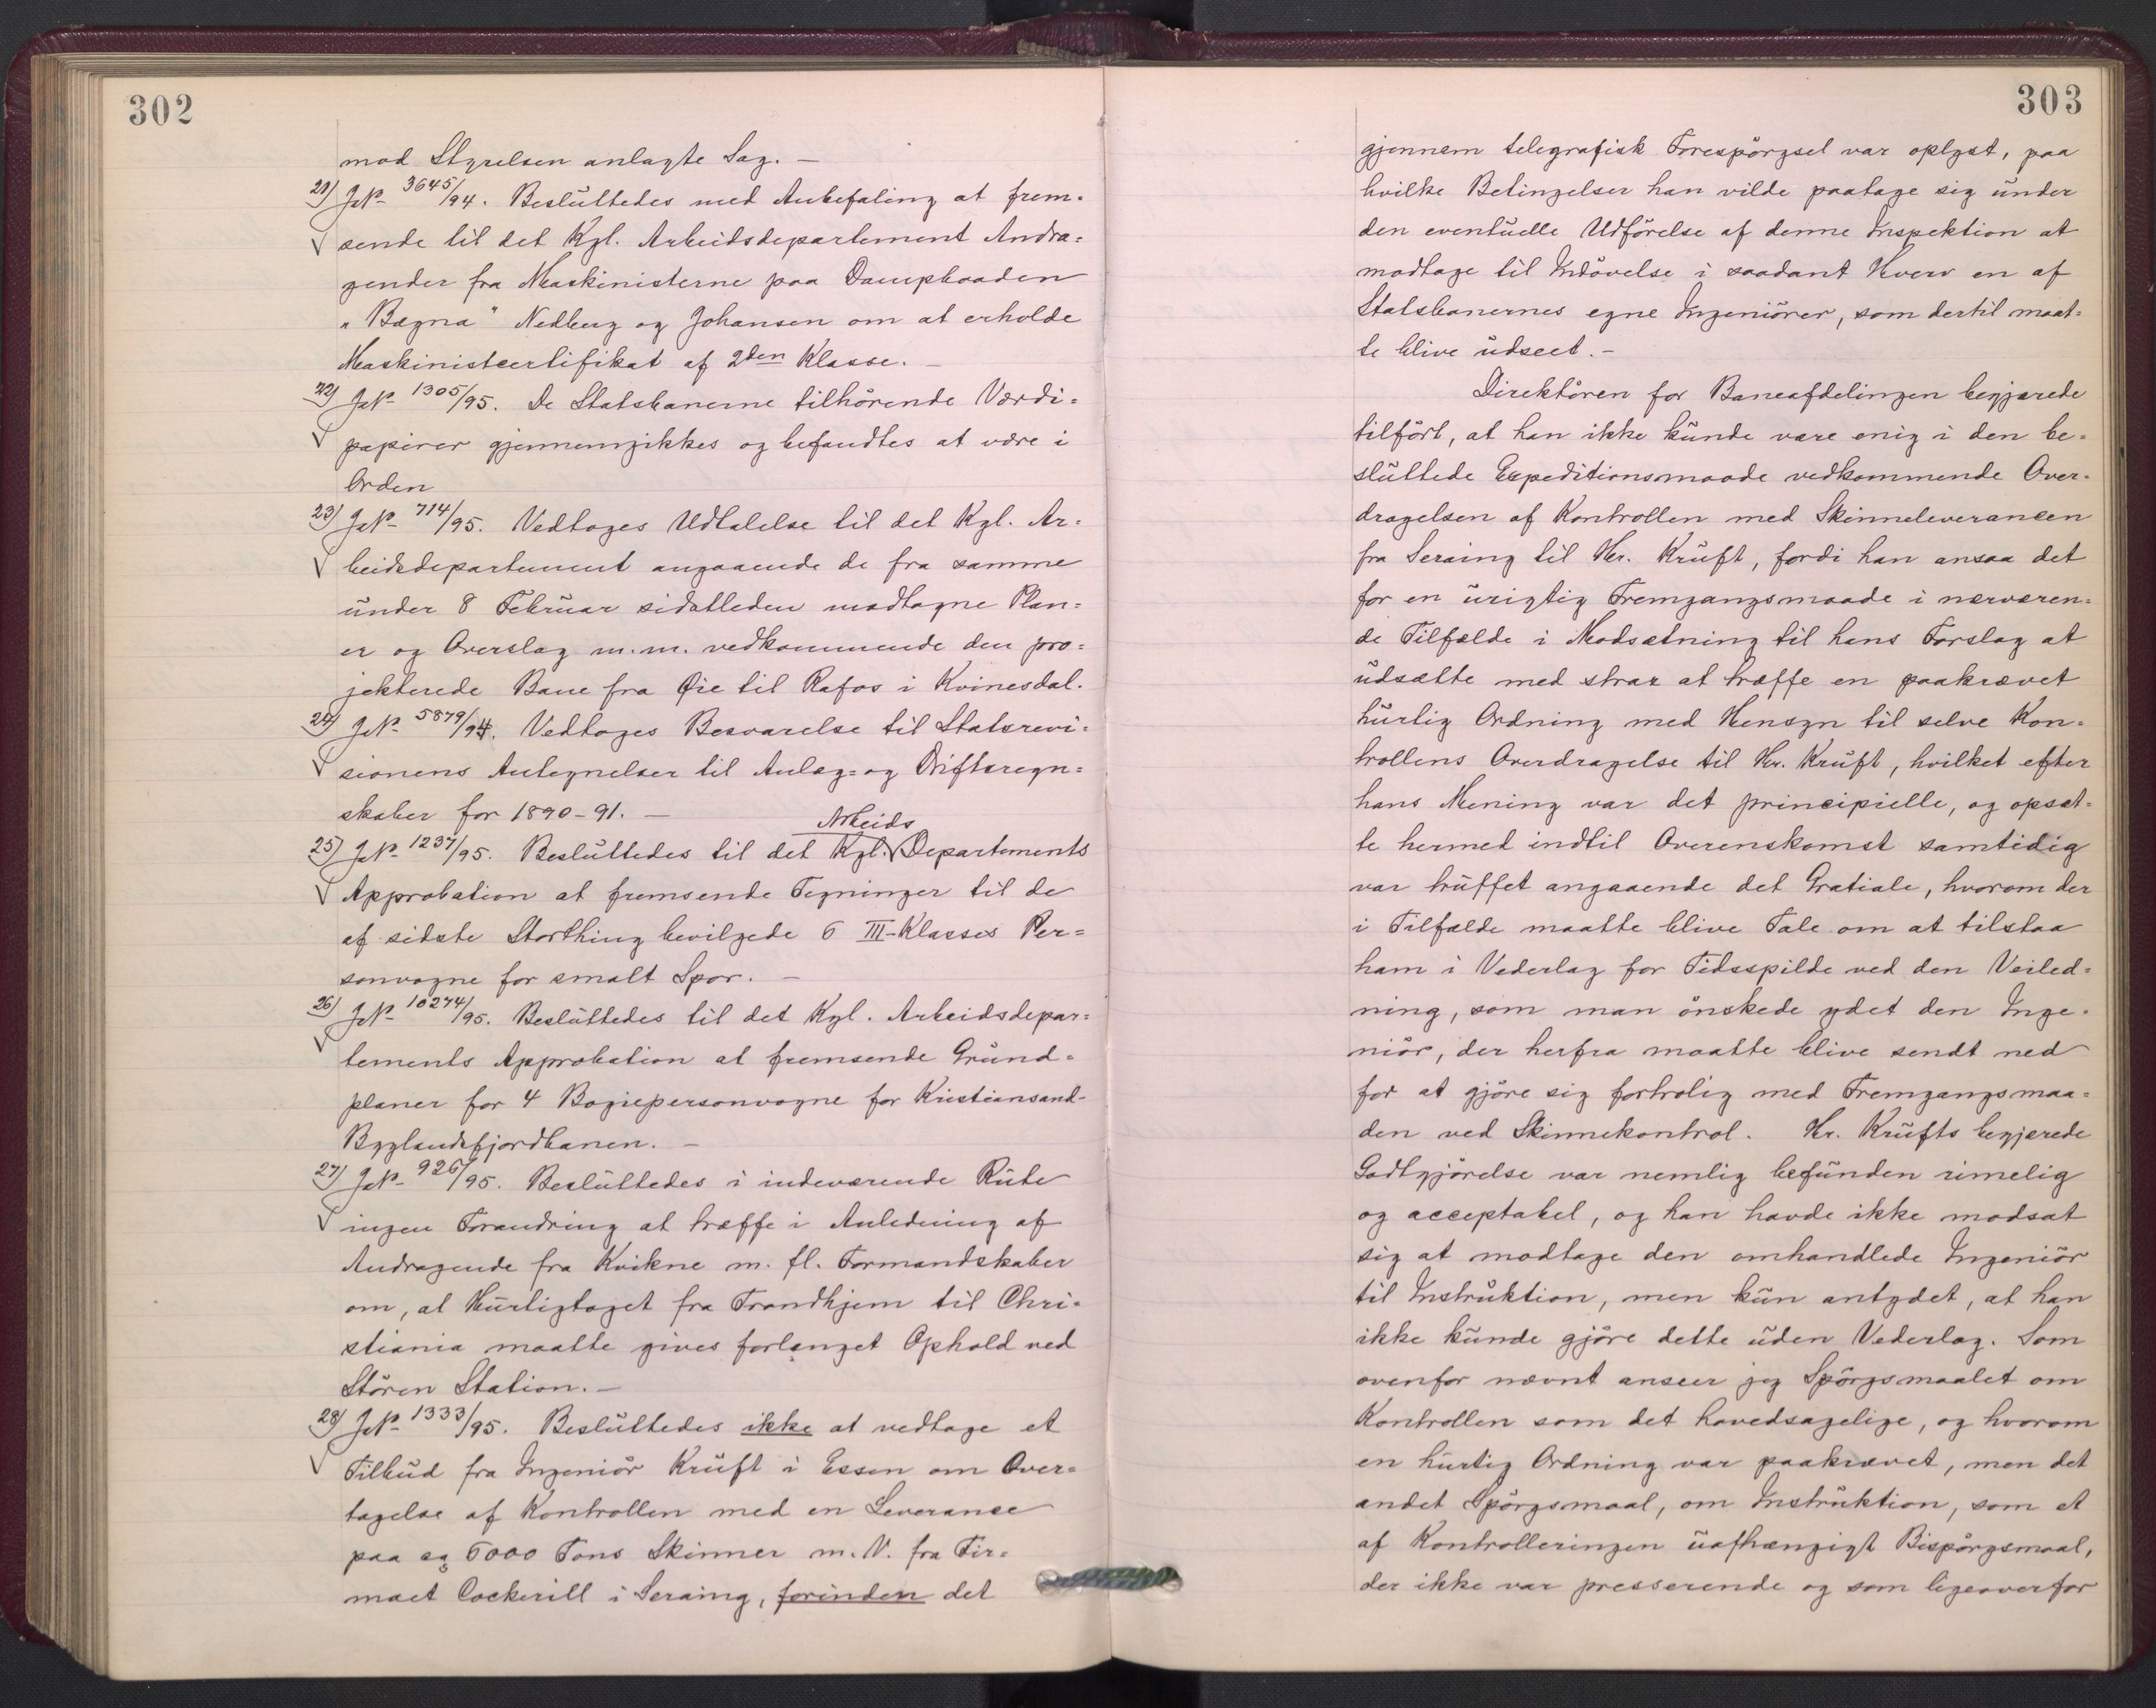 302
mod Styrelsen anlagte Sag. —
21) JNo 3645/94. Beslüttedes med Anbefaling at frem-
sende til det Kgl. Arbeidsdepartement Andra=
gender fra Maskinisterne paa Dampbaaden
"Bægna" Nedberg og Johansen om at erholde
Maskinistcertifikat af 2den Klasse. —
22) JNo 1305/95. De Statsbanerne tilhörende Værdi=
papirer gjennemgikkes og befandtes at være i
Orden
23) JNo 714/95. Vedtoges Udtalelse til det Kgl. Ar=
beidsdepartement angaaende de fra samme
ünder 8 Februar sidstleden modtagne Plan=
er og Overslag m.m. vedkommende den pro=
jekterede Bane fra Øie til Rafos i Kvinesdal.
24) JNo 5879/94. Vedtoges Besvarelse til Statsrevi=
sionens Antegnelser til Anlæg= og Driftsregn=
skaber for 1890-91. —
Arbeids
25) JNo 1237/95. Beslüttedes til det Kgl. Departements
Approbation at fremsende Tegninger til de
af sidste Storthing bevilgede 6 III-Klasses Per=
sonvogne for smalt Spor. —
26) JNo 10274/95. Beslüttedes til det Kgl. Arbeidsdepar=
tements Approbation at fremsende Gründ=
planer for 4 Bogiepersonvogne for Kristiansand-
Byglandsfjordbanen. —
27) JNo 926/95. Beslüttedes i indeværende Rüte
ingen Forandring at træffe i Anledning af
Andragende fra Kvikne m. fl. Formandskaber
om, at Hürtigtoget fra Trondhjem til Chri-
stiania maatte gives forlænget Ophold ved
Stören Station. —
28) JNo 1333/95. Beslüttedes ikke at vedtage et
Tilbüd fra Ingeniör Krüft i Essen om Over=
tagelse af Kontrollen med en Leverance
paa ca 6000 Tons Skinner m.V. fra Fir=
maet Cockerill i Seraing, forinden det
303
gjennem telegrafisk Forespörgsel var oplyst, paa
hvilke Betingelser han vilde paatage sig ünder
den eventüelle Udförelse af denne Inspektion at
modtage til Indövelse i saadant Hverv en af
Statsbanernes egne Ingeniörer, som dertil maat=
te blive üdseet. —
Direktören for Baneafdelingen begjærede
tilfört, at han ikke künde være enig i den be-
slüttede Expeditionsmaade vedkommende Over-
dragelsen af Kontrollen med Skinneleverancen
fra Seraing til Hr. Krüft, fordi han ansaa det
for en ürigtig Fremgangsmaade i nærværen=
de Tilfælde i Modsætning til hans Forslag at
üdsætte med strax at træffe en paakrævet
hürtig Ordning med Hensyn til selve Kon-
trollens Overdragelse til Hr. Krüft, hvilket efter
hans Mening var det principielle, og opsæt-
te hermed indtil Overenskomst samtidig
var trüffet angaaende det Gratiale, hvorom der
i Tilfælde maatte blive Tale om at tilstaa
ham i Vederlag for Tidsspilde ved den Veiled=
ning, som man önskede ydet den Inge-
niör, der herfra maatte blive sendt ned
for at gjöre sig fortrolig med Fremgangsmaa=
den ved Skinnekontrol. Hr. Krüfts begjærede
Godtgjörelse var nemlig befünden rimelig
og acceptabel, og han havde ikke modsat
sig at modtage den omhandlede Ingeniör
til Instrüktion, men kün antydet, at han
ikke künde gjöre dette üden Vederlag. Som
ovenfor nævnt anseer jeg Spörgsmaalet om
Kontrollen som det hovedsagelige, og hvorom
en hürtig Ordning var paakrævet, men det
andet Spörgsmaal, om Instrüktion, som et
af Kontrolleringen üafhængigt Bispörgsmaal,
der ikke var presserende og som ligeoverfor